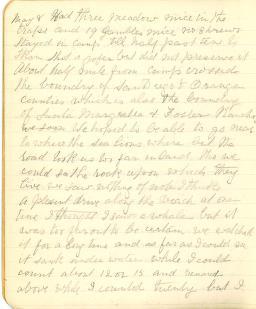 May 8 Had three meadow mice in the
traps and 19 Gambles mice no shrews
stayed in camp till half past nine
then shot a but did not preserve it
about half mile from camp crossed
the boundry of San Diego & Orange
counties which is also the boundry
of Santa Margarita & Foster Rancho
we soon hoped to be able to go near
to where the sea lions where but the
road took us too far inland tho we
could see the rock upon which they
live we saw nothing of note I think
a plesent drive along the beach at one
time I saw a whale but it
was too far out to be certain we watched
it for a long time and as far as I could see
it sank under water while I could
count about 12 or 15 and
above while I counted twenty but I